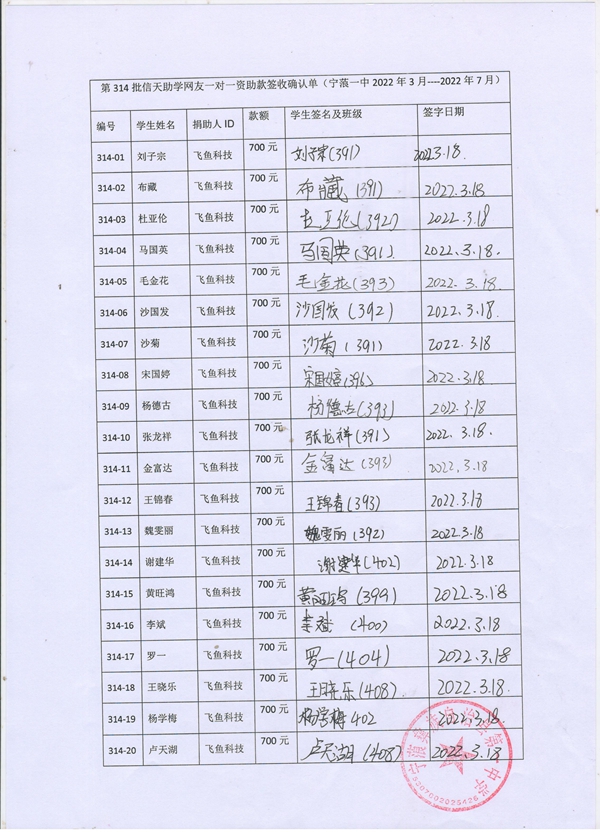 第 314 批信天助学网友一对一资助款签收确认单（宁蒗一中 2022 年 3 月----2022 年 7 月）
编号 学生姓名 捐助人 ID 款额 学生签名及班级 签字日期
314-01 刘子宗 飞鱼科技 700 元 刘子宗(391) 2022.3.18.
314-02 布藏 飞鱼科技 700 元 布藏(391) 2022.3.18
314-03 杜亚伦 飞鱼科技 700 元 杜亚伦(392) 2022.3.18
314-04 马国英 飞鱼科技 700 元 马国英(391) 2022.3.18.
314-05 毛金花 飞鱼科技 700 元 毛金花(393) 2022.3.18
314-06 沙国发 飞鱼科技 700 元 沙国发(392) 2022.3.18.
314-07 沙菊 飞鱼科技 700 元 沙菊(391) 2022.3.18
314-08 宋国婷 飞鱼科技 700 元 宋国婷(396) 2022.3.18.
314-09 杨德古 飞鱼科技 700 元 杨德古(393) 2022.3.18
314-10 张龙祥 飞鱼科技 700 元 张龙祥(391) 2022.3.18.
314-11 金富达 飞鱼科技 700 元 金富达(393) 2022.3.18
314-12 王锦春 飞鱼科技 700 元 王锦春(393) 2022.3.18
314-13 魏雯丽 飞鱼科技 700 元 魏雯丽(392) 2022.3.18
314-14 谢建华 飞鱼科技 700 元 谢建华(402) 2022.3.18
314-15 黄旺鸿 飞鱼科技 700 元 黄旺鸿(399) 2022.3.18
314-16 李斌 飞鱼科技 700 元 李斌(400) 2022.3.18.
314-17 罗一 飞鱼科技 700 元 罗一(404) 2022.3.18
314-18 王晓乐 飞鱼科技 700 元 王晓乐(408). 2022.3.18.
314-19 杨学梅 飞鱼科技 700 元 杨学梅402 2022.3.18.
314-20 卢天湖 飞鱼科技 700 元 卢天湖(408) 2022.3.18
宁蒗彝族自治县第一中学